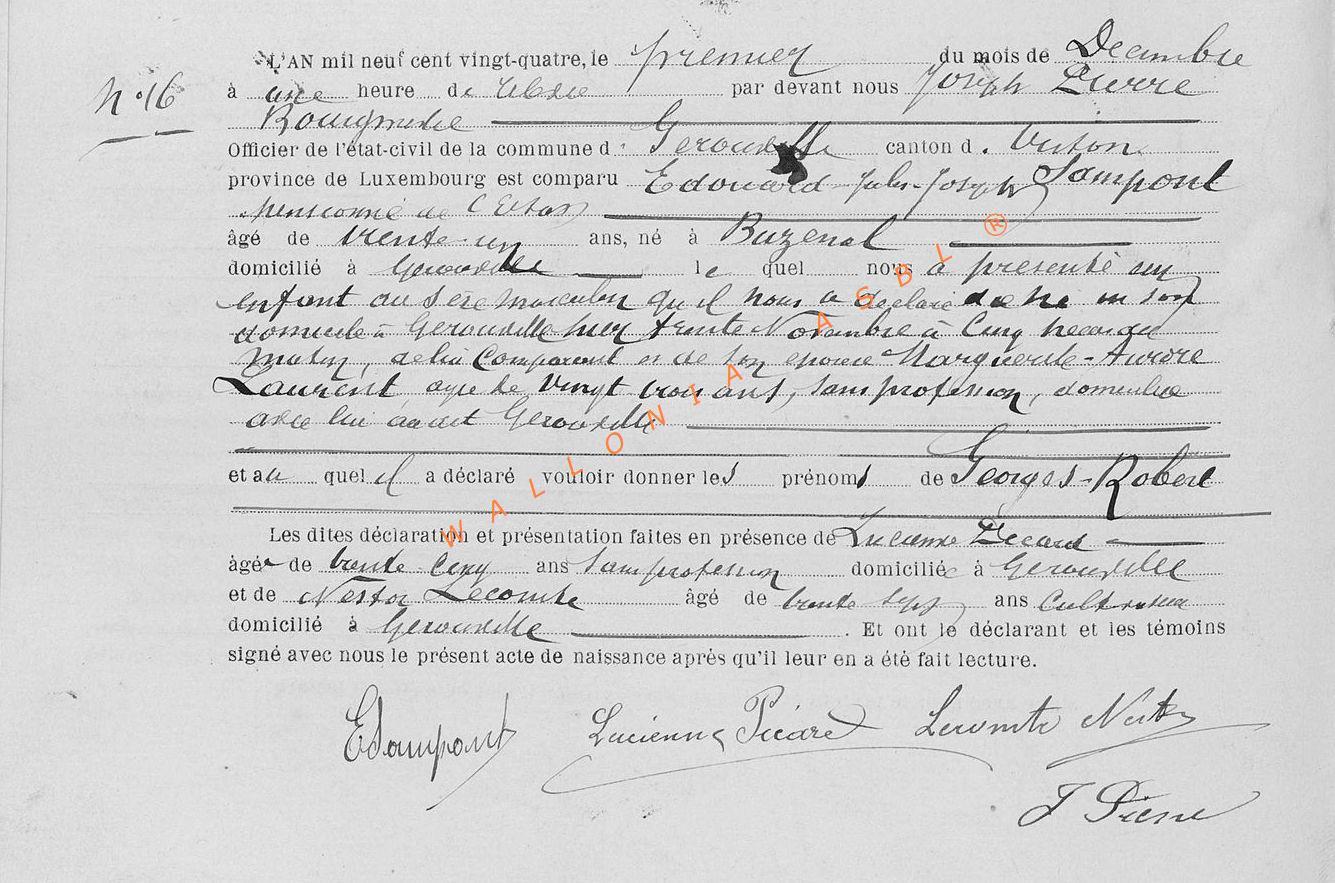 N° 16
L'AN mil neuf cent vingt-quatre, le premier du mois de Décembre
à une heure de relevée par devant nous Joseph Pierre
Bourgmestre
Officier de l'état-civil de la commune d. Gérouville canton d. Virton
province de Luxembourg est comparu Edouard-Jules-Joseph Sampont
pensionné de l'Etat
âgé de trente-un ans, né à Buzenol
domicilié à Gérouville lequel nous a présenté un
enfant du sexe masculin qu'il nous a déclaré être né en son
domicile à Gérouville hier trente Novembre à cinq heures du
matin, de lui comparant et de son épouse Marguerite-Aurore
Laurent âgée de vingt trois ans, sans profession, domiciliée
avec lui audit Gérouville
et au quel il a déclaré vouloir donner les prénoms de Georges-Robert
Les dites déclaration et présentation faites en présence de Lucienne Picard
âgée de trente-cinq ans sans profession domiciliée à Gérouville
et de Nestor Lecomte âgé de trente sept ans cultivateur
domicilié à Gérouville. Et ont le déclarant et les témoins
signé avec nous le présent acte de naissance après qu'il leur en a été fait lecture.
ESampont Lucienne Picard Lecomte Nestor
J Pierre
WALLONIA ASBL ®